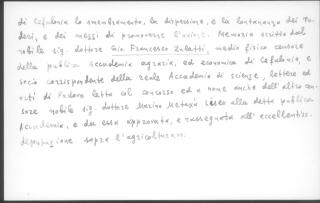 di Cefalonia lo smembramento, la dispersione, e la lontananza dei Po-
deri, e dei mezzi di promoverne l'unione. Memoria scritta dal
nobile sig. dottore Gio. Francesco Zulatti, medico fisico censore
della pubblica Accademia agraria, ed economica di Cefalonia, e
socio corrispondente della reale Accademia di scienze, lettere ed
arti di Padova letta col concorso ed a nome anche dell'altro cen-
sore nobile sig. dottore Marino Metaxà alla detta pubblica
Accademia, e da essa approvata, e rassegnata all'eccellentiss.
deputazione sopra l'agricoltura.